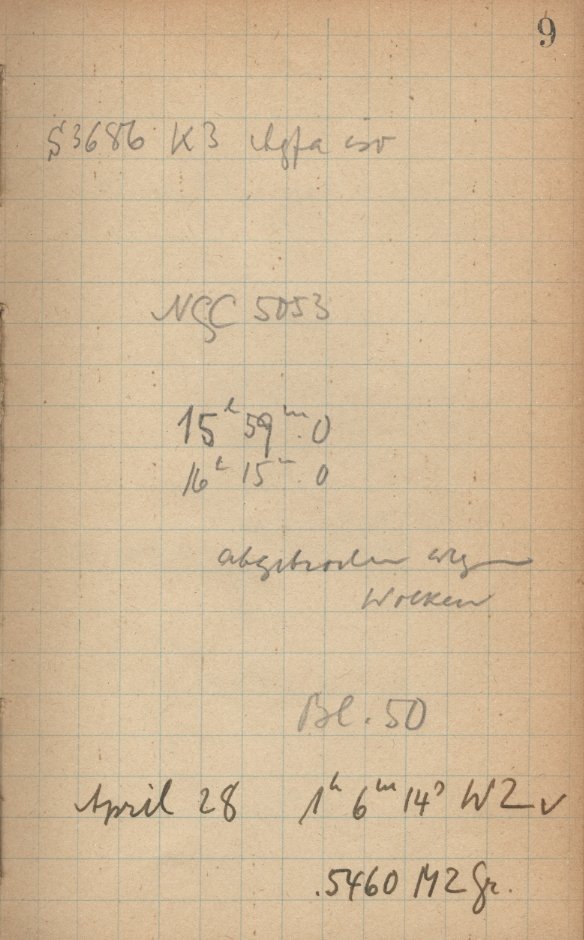 9
S3686 K3 Agfa iso
NGC 5053
15ʰ 59ᵐ.0
16ʰ 15ᵐ.0
abgebrochen wegen
Wolken
Bl. 50
April 28 1ʰ 6ᵐ 14ˢ WZ v
.5460 MZ Gr.